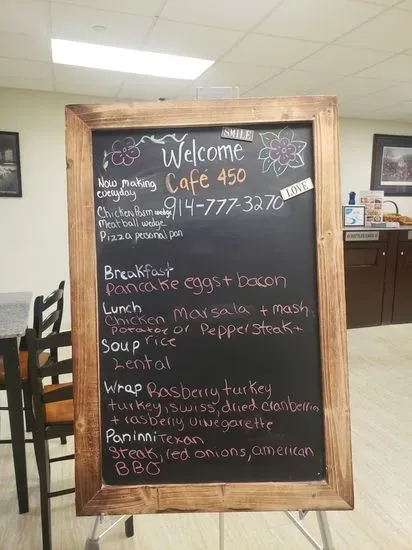 SMILE
Welcome
Café 450
LOVE
914-777-3270
Now making
everyday
Chicken Parm wedge
Meatball wedge
Pizza personal pan
Breakfast
Pancake eggs + bacon
Lunch
Chicken Marsala + mash
potatoe or Pepper steak +
rice
Soup
Lental
Wrap Rasberry turkey
turkey, swiss, dried cranberries
+ rasberry vinegarette
Paninni Texan
Steak, red onions, american
BBQ